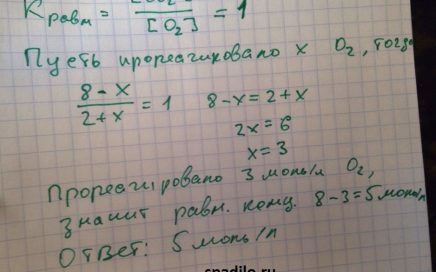 Kравн = / [O₂] = 1
Пусть прореагировало x O₂, тогда
8 - x / 2 + x = 1 8 - x = 2 + x
2x = 6
x = 3
Прореагировало 3 моль/л O₂,
значит равн. конц. 8 - 3 = 5 моль/л
Ответ: 5 моль/л
spadilo.ru